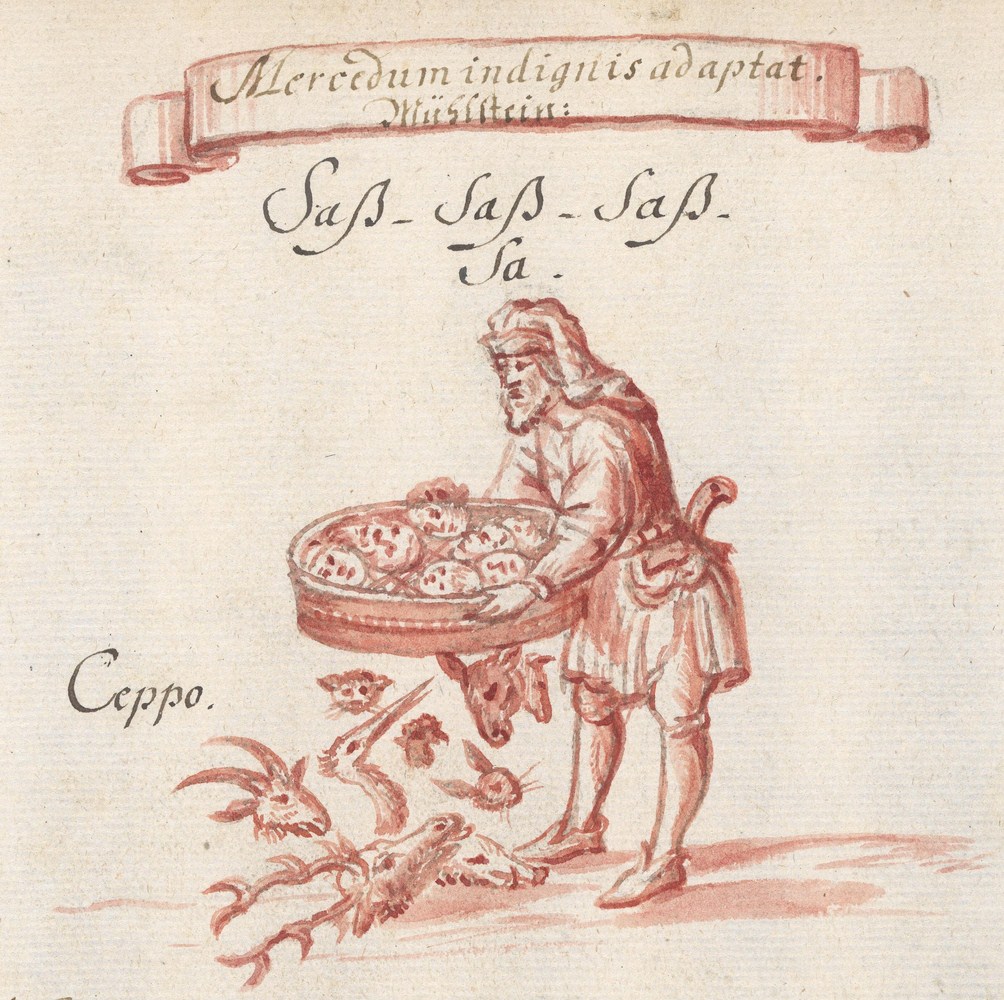 Mercedum indignis adaptat.
Mühlstein:
Saß - Saß - Saß -
Sa .
Ceppo.